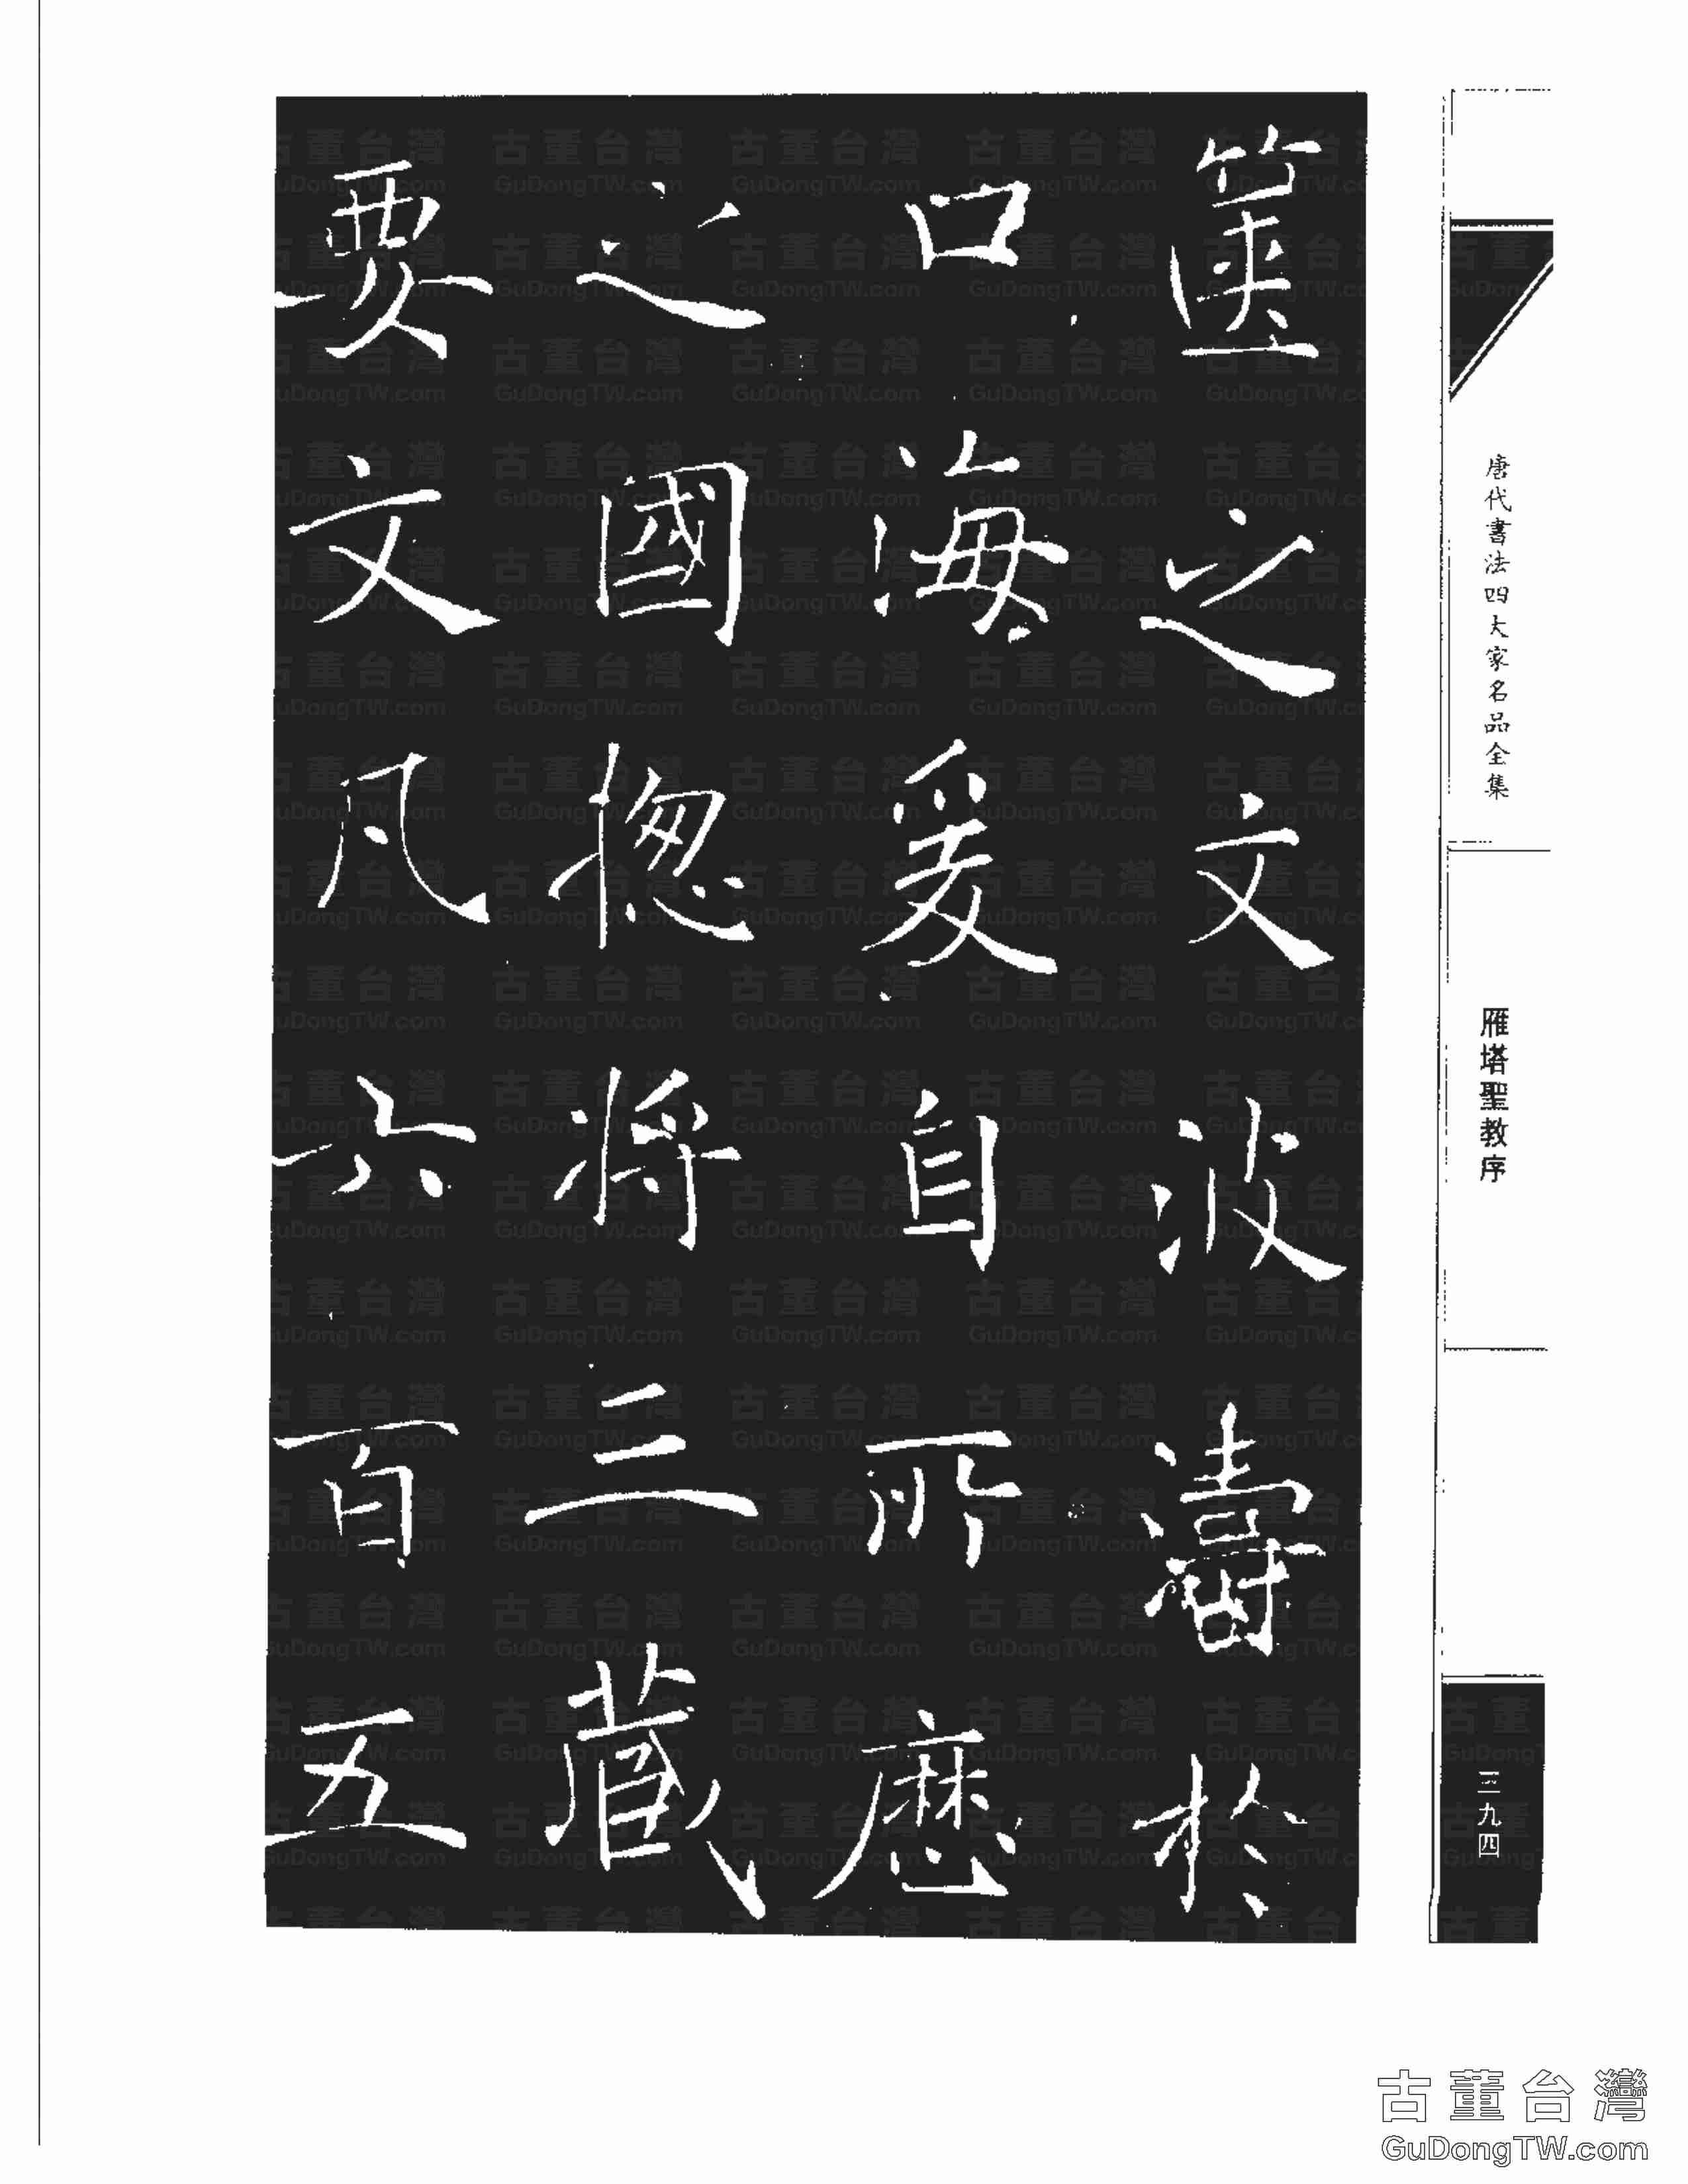 篋之文波濤於
口海爰自所歷
之國揔將三藏
要文凡六百五
唐代書法四大家名品全集
雁塔聖教序
三九四
古董台灣
GuDongTW.com